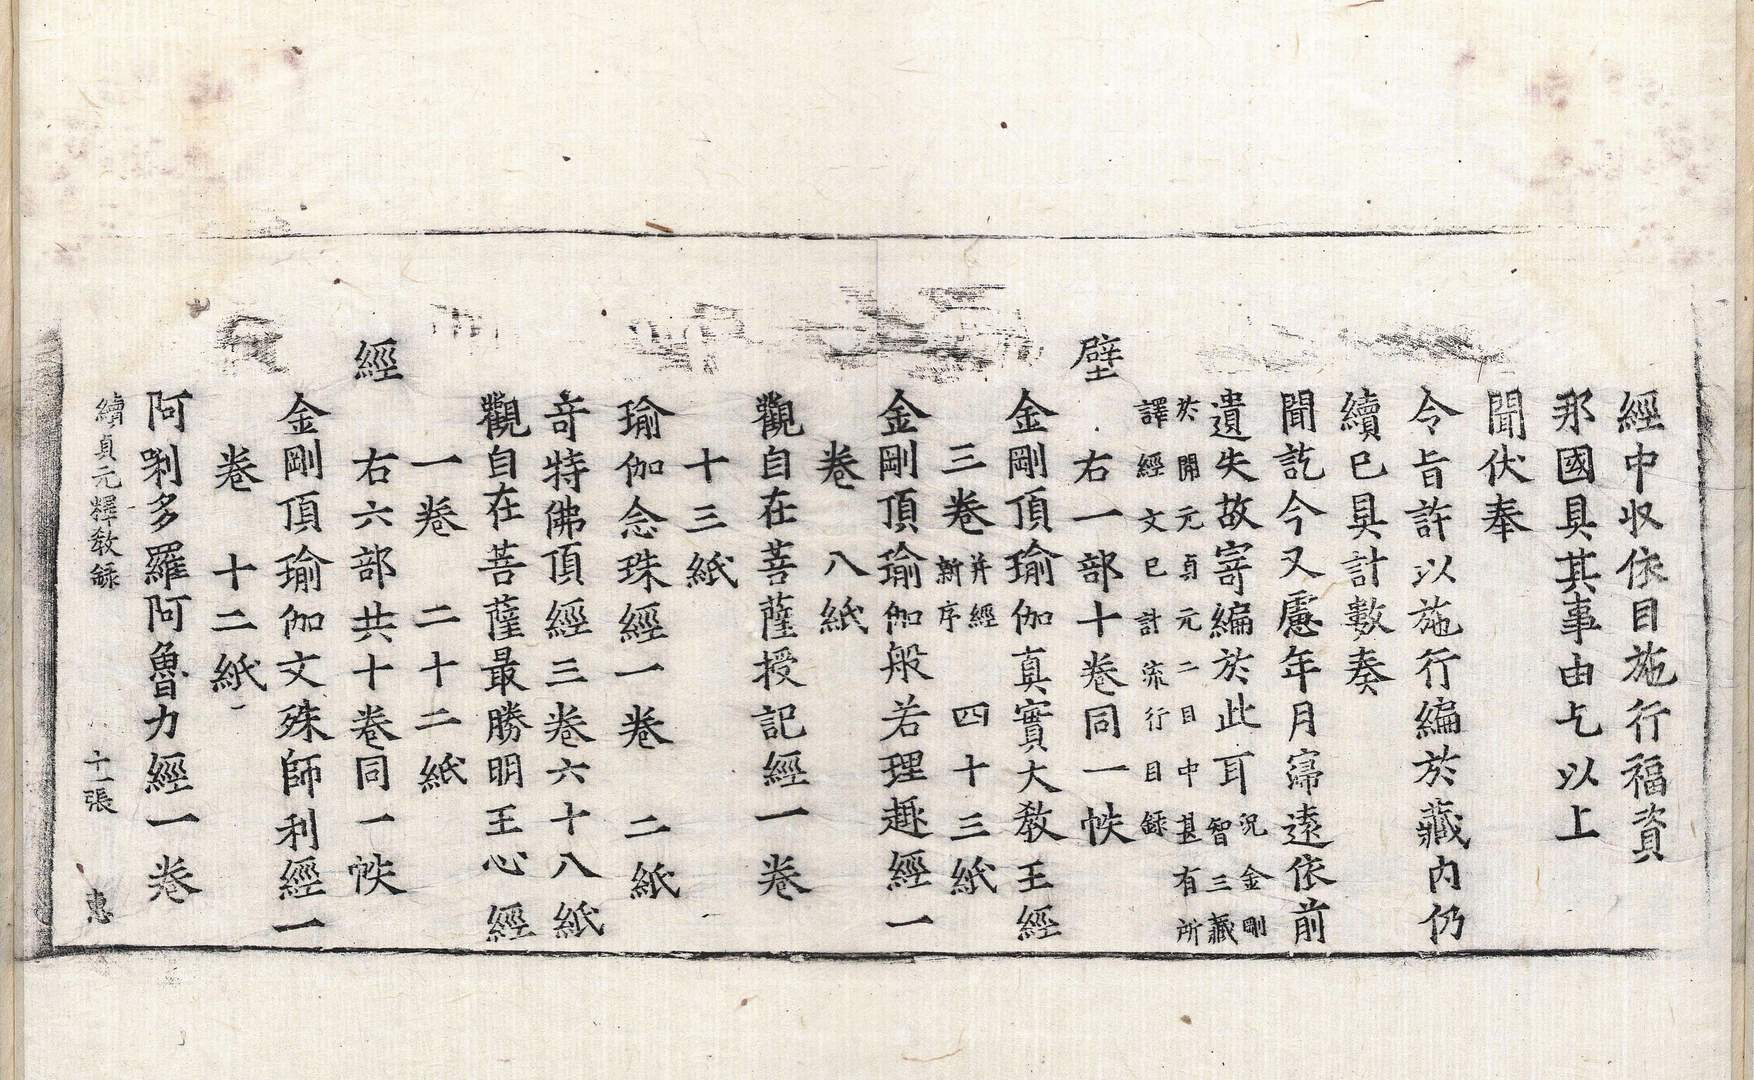 經中収依目施行福資
那國具其事由乞以上
聞伏奉
令旨許以施行編於藏内仍
續已具計數奏
聞訖今又慮年月寖遠依前
遺失故寄編於此耳況金剛智三藏
於開元貞元二目中甚有所
譯經文已計流行目録
壁
右一部十卷同一帙
金剛頂瑜伽真實大教王經
三卷并經新序 四十三紙
金剛頂瑜伽般若理趣經一
卷 八紙
觀自在菩薩授記經一卷
十三紙
瑜伽念珠經一卷 二紙
竒特佛頂經三卷六十八紙
觀自在菩薩最勝明王心經
一卷 二十二紙
經
右六部共十卷同一帙
金剛頂瑜伽文殊師利經一
卷 十二紙
阿唎多羅阿魯力經一卷
續貞元釋教録 十一張 惠